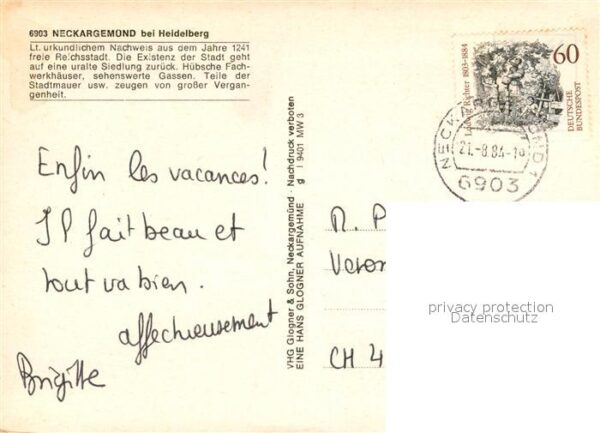 6903 NECKARGEMÜND bei Heidelberg
Lt. urkundlichem Nachweis aus dem Jahre 1241
freie Reichsstadt. Die Existenz der Stadt geht
auf eine uralte Siedlung zurück. Hübsche Fach-
werkhäuser, sehenswerte Gassen. Teile der
Stadtmauer usw. zeugen von großer Vergan-
genheit.
Enfin les vacances!
Il fait beau et
tout va bien.
affectueusement
Brigitte
VHG Glogner & Sohn, Neckargemünd · Nachdruck verboten
EINE HANS GLOGNER AUFNAHME g I 9401 MW 3
60
Ludwig Richter 1803-1884
DEUTSCHE
BUNDESPOST
NECKARGEMÜND 1
21.-8.84-19
6903
M. P
Veron
CH 4
privacy protection
Datenschutz